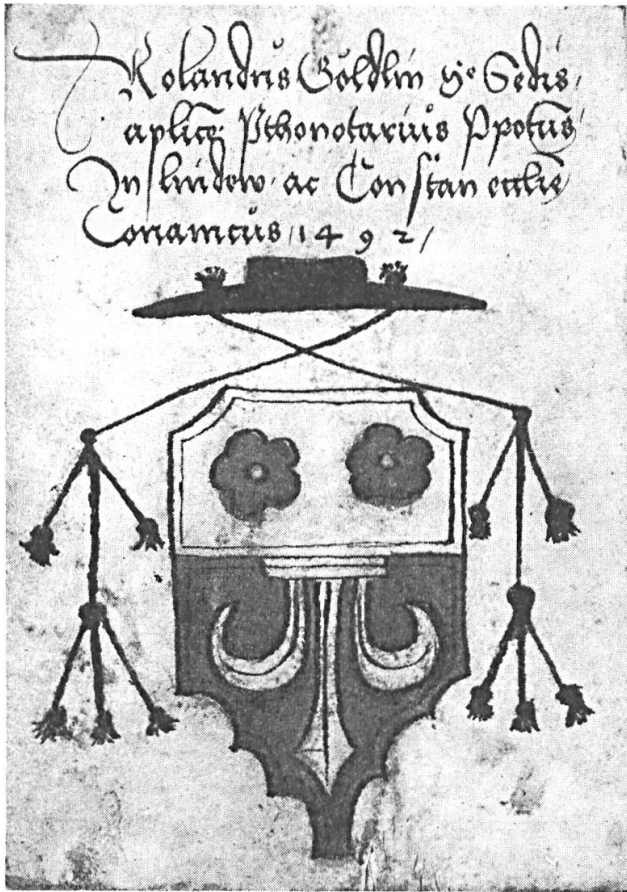 Rolandus Göldlin ste Sedis
aplice Pthonotarius Ppotus
In lindow ac Constan ecclie
Conanicus / 1492 /